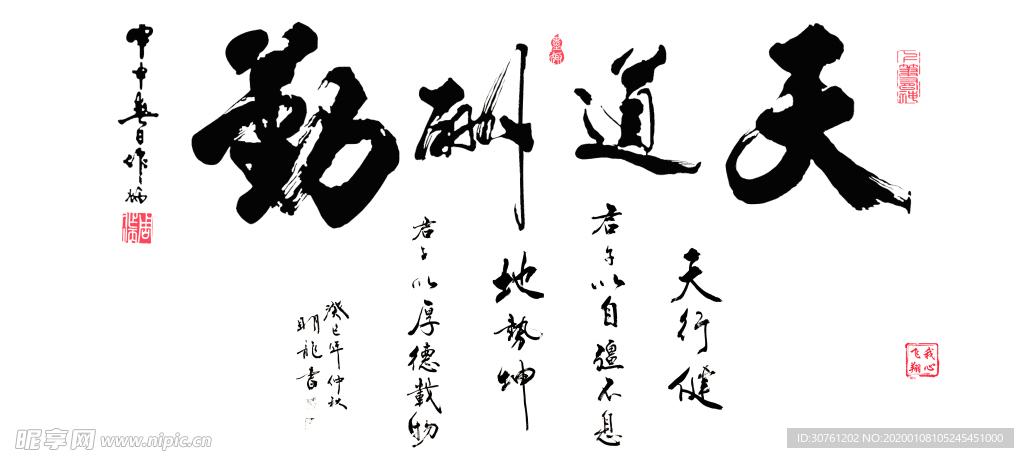 天道酬勤
天行健
君子以自彊不息
地勢坤
君子以厚德載物
癸巳年仲秋
明龍書
甲申春日作炳
我心飞翔
昵享网 www.nipic.cn
ID:30761202 NO:20200108105245451000